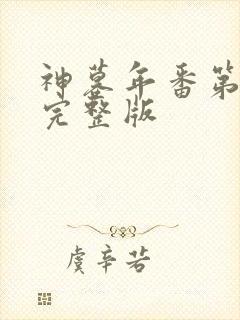 神墓年番第
完整版
虞辛若